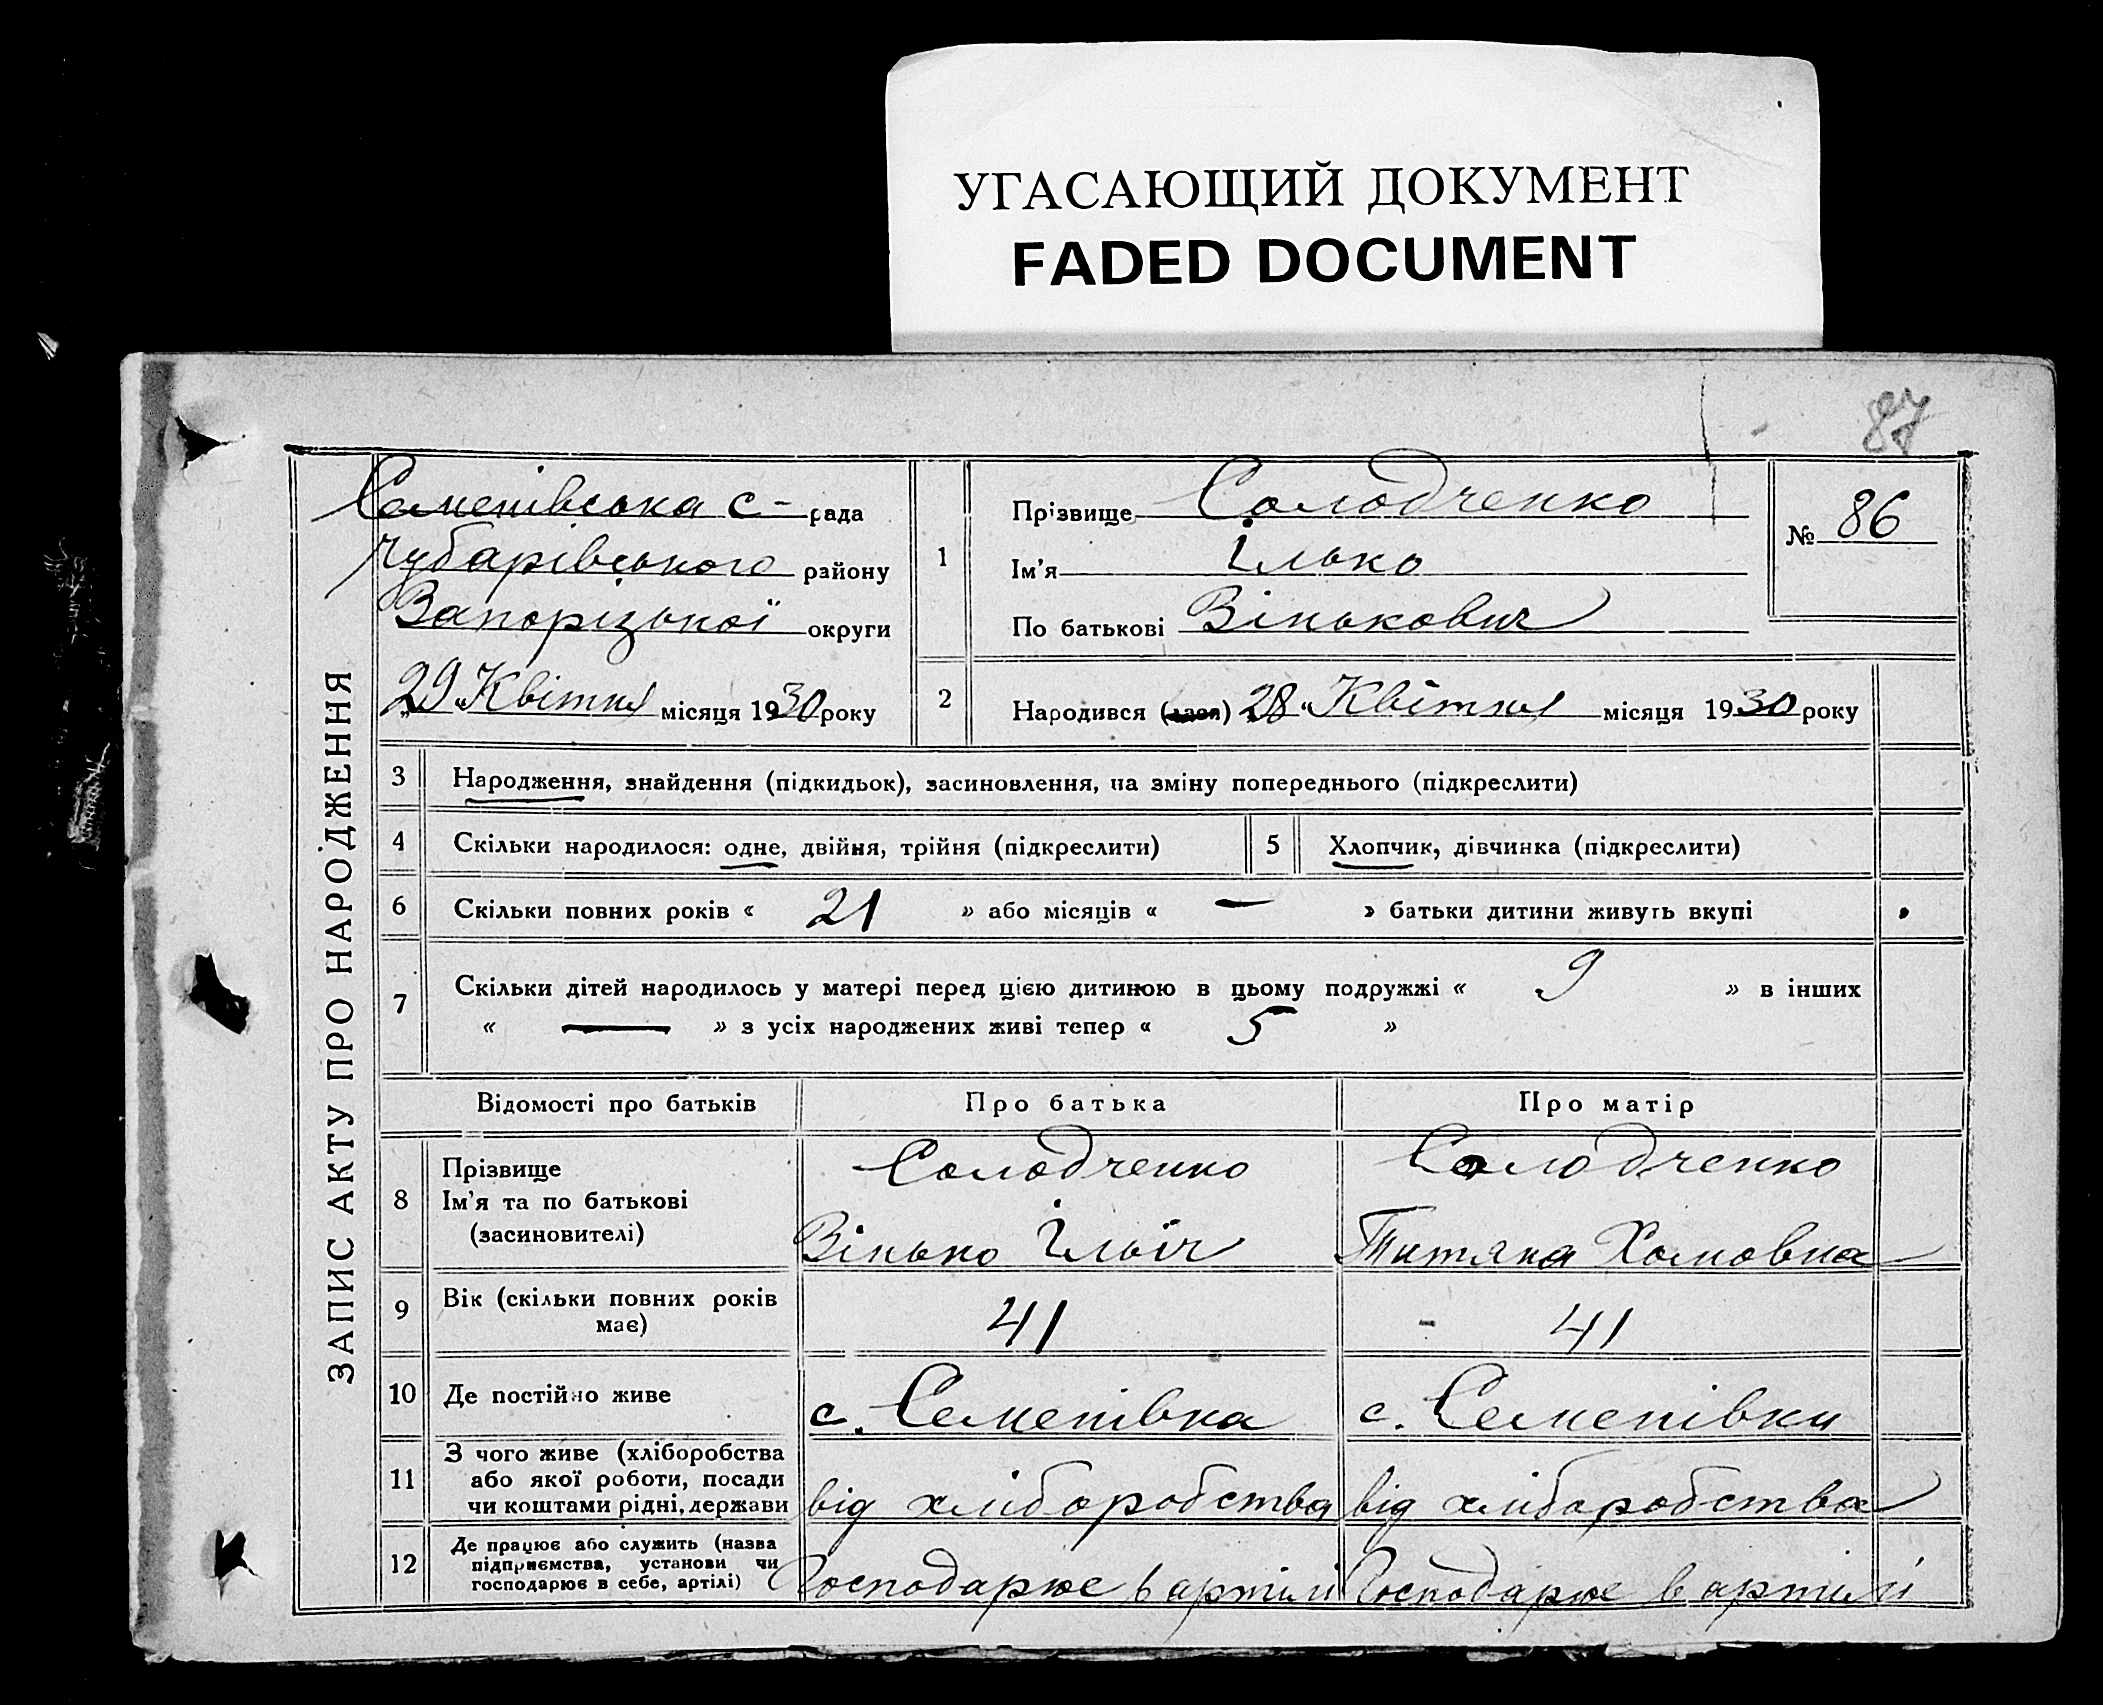 УГАСАЮЩИЙ ДОКУМЕНТ
FADED DOCUMENT
87
ЗАПИС АКТУ ПРО НАРОДЖЕННЯ
Семенівська с- рада
Чубарівського району
Запорізької округи
„29“ Квітня місяця 1930 року
1
Прізвище Солодченко
Ім'я Ілько
По батькові Вінькович
№ 86
2
Народився (лася) „28“ Квітня місяця 1930 року
3 Народження, знайдення (підкидьок), засиновлення, на зміну попереднього (підкреслити)
4 Скільки народилося: одне, двійня, трійня (підкреслити)
5 Хлопчик, дівчинка (підкреслити)
6 Скільки повних років « 21 » або місяців « — » батьки дитини живуть вкупі
7 Скільки дітей народилось у матері перед цією дитиною в цьому подружжі « 9 » в інших
« — » з усіх народжених живі тепер « 5 »
Відомості про батьків Про батька Про матір
8 Прізвище
Ім'я та по батькові
(засиновителі)
Солодченко
Вінько Ільіч
Солодченко
Титяна Хомовна
9 Вік (скільки повних років
має)
41
- 41
10 Де постійно живе с. Семенівка с. Семенівки
11 З чого живе (хліборобства
або якої роботи, посади
чи коштами рідні, держави
від хліборобства від хліборобства
12 Де працює або служить (назва
підприємства, установи чи
господарює в себе, артілі)
Господарює в артілі Господарює в артилі